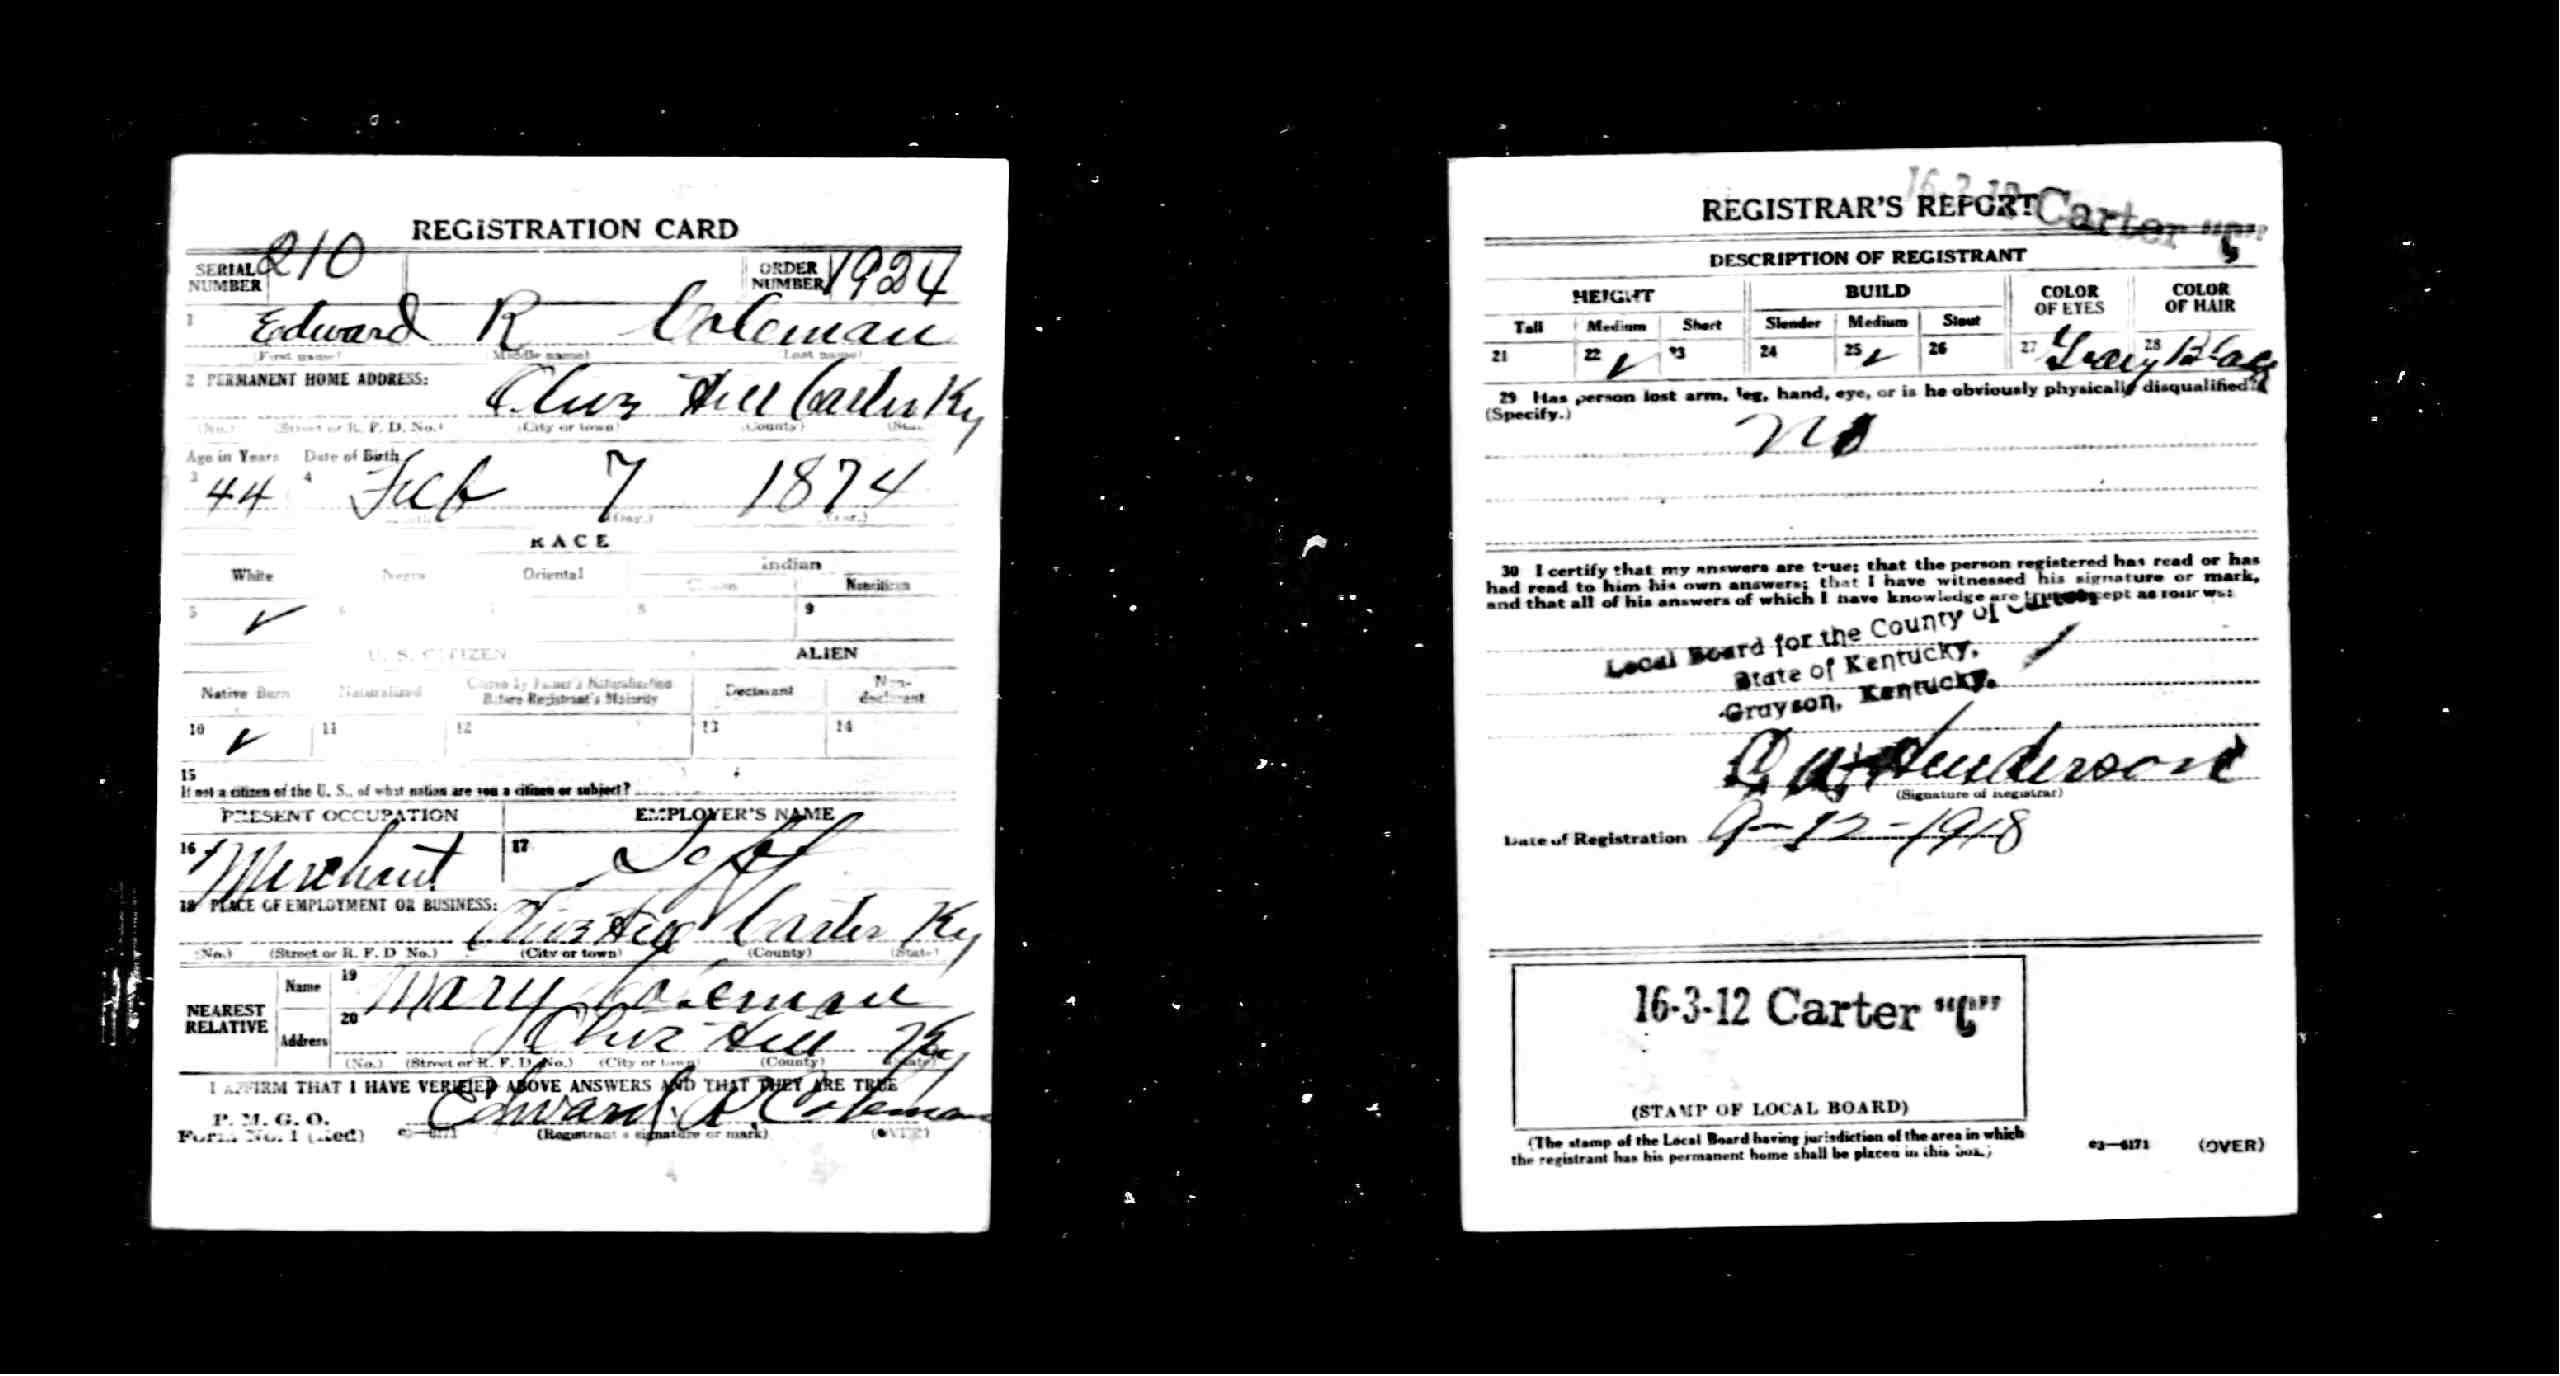 REGISTRATION CARD
SERIAL NUMBER 210 ORDER NUMBER 1924
1 Edward R Coleman
(First name) (Middle name) (Last name)
2 PERMANENT HOME ADDRESS:
Olive Hill Carter Ky
(No.) (Street or R. F. D. No.) (City or town) (County) (State)
Age in Years Date of Birth
3 44 4 Feb 7 1874
(Day.) (Year.)
RACE
White Negro Oriental Indian
Citizen Noncitizen
5 ✓ 6 7 8 9
U. S. CITIZEN ALIEN
Native Born Naturalized Citizen by Father's Naturalization Before Registrant's Majority Declarant Non-declarant
10 ✓ 11 12 13 14
15
If not a citizen of the U. S., of what nation are you a citizen or subject?
PRESENT OCCUPATION EMPLOYER'S NAME
16 Merchant 17 Self
18 PLACE OF EMPLOYMENT OR BUSINESS:
Olive Hill Carter Ky
(No.) (Street or R. F. D. No.) (City or town) (County) (State)
NEAREST RELATIVE
Name 19 Mary Coleman
Address 20 Olive Hill Ky
(No.) (Street or R. F. D. No.) (City or town) (County) (State)
I AFFIRM THAT I HAVE VERIFIED ABOVE ANSWERS AND THAT THEY ARE TRUE
P. M. G. O.
Form No. 1 (Red) 03—6171 Edward R Coleman
(Registrant's signature or mark) (OVER)
16-3-12 Carter "C"
REGISTRAR'S REPORT
DESCRIPTION OF REGISTRANT
HEIGHT BUILD COLOR OF EYES COLOR OF HAIR
Tall Medium Short Slender Medium Stout
21 22 ✓ 23 24 25 ✓ 26 27 Gray 28 Black
29 Has person lost arm, leg, hand, eye, or is he obviously physically disqualified?
(Specify.)
No
30 I certify that my answers are true; that the person registered has read or has
had read to him his own answers; that I have witnessed his signature or mark,
and that all of his answers of which I have knowledge are true, except as follows:
Local Board for the County of Carter
State of Kentucky,
Grayson, Kentucky.
Henderson
(Signature of Registrar)
Date of Registration 9-12-1918
16-3-12 Carter "C"
(STAMP OF LOCAL BOARD)
(The stamp of the Local Board having jurisdiction of the area in which
the registrant has his permanent home shall be placed in this box.)
03—6171 (OVER)